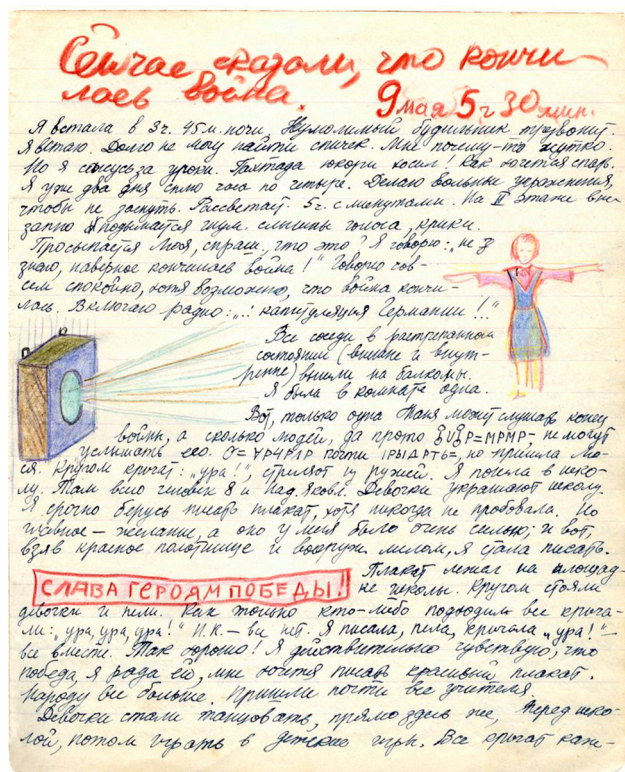 Сейчас сказали, что кончи-
лась война. 9 мая 5 ч 30 мин.
Я встала в 3 ч. 45 м. ночи. Неумолимый будильник трезвонит.
Я встаю. Долго не могу найти спичек. Мне почему-то жутко.
Но я сажусь за уроки. Как хочется спать.
Я уже два дня сплю часа по четыре. Делаю вольные упражнения,
чтобы не заснуть. Рассветает. 5 ч. с минутами. На II этаже вне-
запно поднимается шум. слышны голоса, крики.
Просыпается Моя, спраш. что это? Я говорю: „не
знаю, наверное кончилась война!" Говорю сов-
сем спокойно, хотя возможно, что война кончи-
лась. Включаю радио: „... капитуляция Германии!..."
Все соседи в растрепанном
состоянии (внешне и внут-
ренне) вышли на балконы.
Я была в комнате одна.
Вот, только одна Таня может слушать конец
войны, а сколько людей, да просто не могут
услышать его. почти но пришла Мо-
ся. Кругом кричат: „ура!", стреляют из ружей. Я пошла в шко-
лу. Там всего человек 8 и Над. Яковл. Девочки украшают школу.
Я срочно берусь писать плакат, хотя никогда не пробовала. Но
главное – желание, а оно у меня было очень сильно; и вот,
взяв красное полотнище и вооруж. мелом, я стала писать.
СЛАВА ГЕРОЯМ ПОБЕДЫ!
Плакат лежал на площад-
ке школы. Кругом стояли
девочки и пели. Как только кто-либо подходил все крича-
ли: „ура, ура, ура!" И.К. – все нет. Я писала, пела, кричала „ура!" –
все вместе. Так хорошо! Я действительно чувствую, что
победа, я рада ей, мне хочется писать красивый плакат.
Народу все больше. Пришли почти все учителя.
Девочки стали танцовать, прямо здесь же, перед шко-
лой, потом играть в детские игры. Все кричат каж-